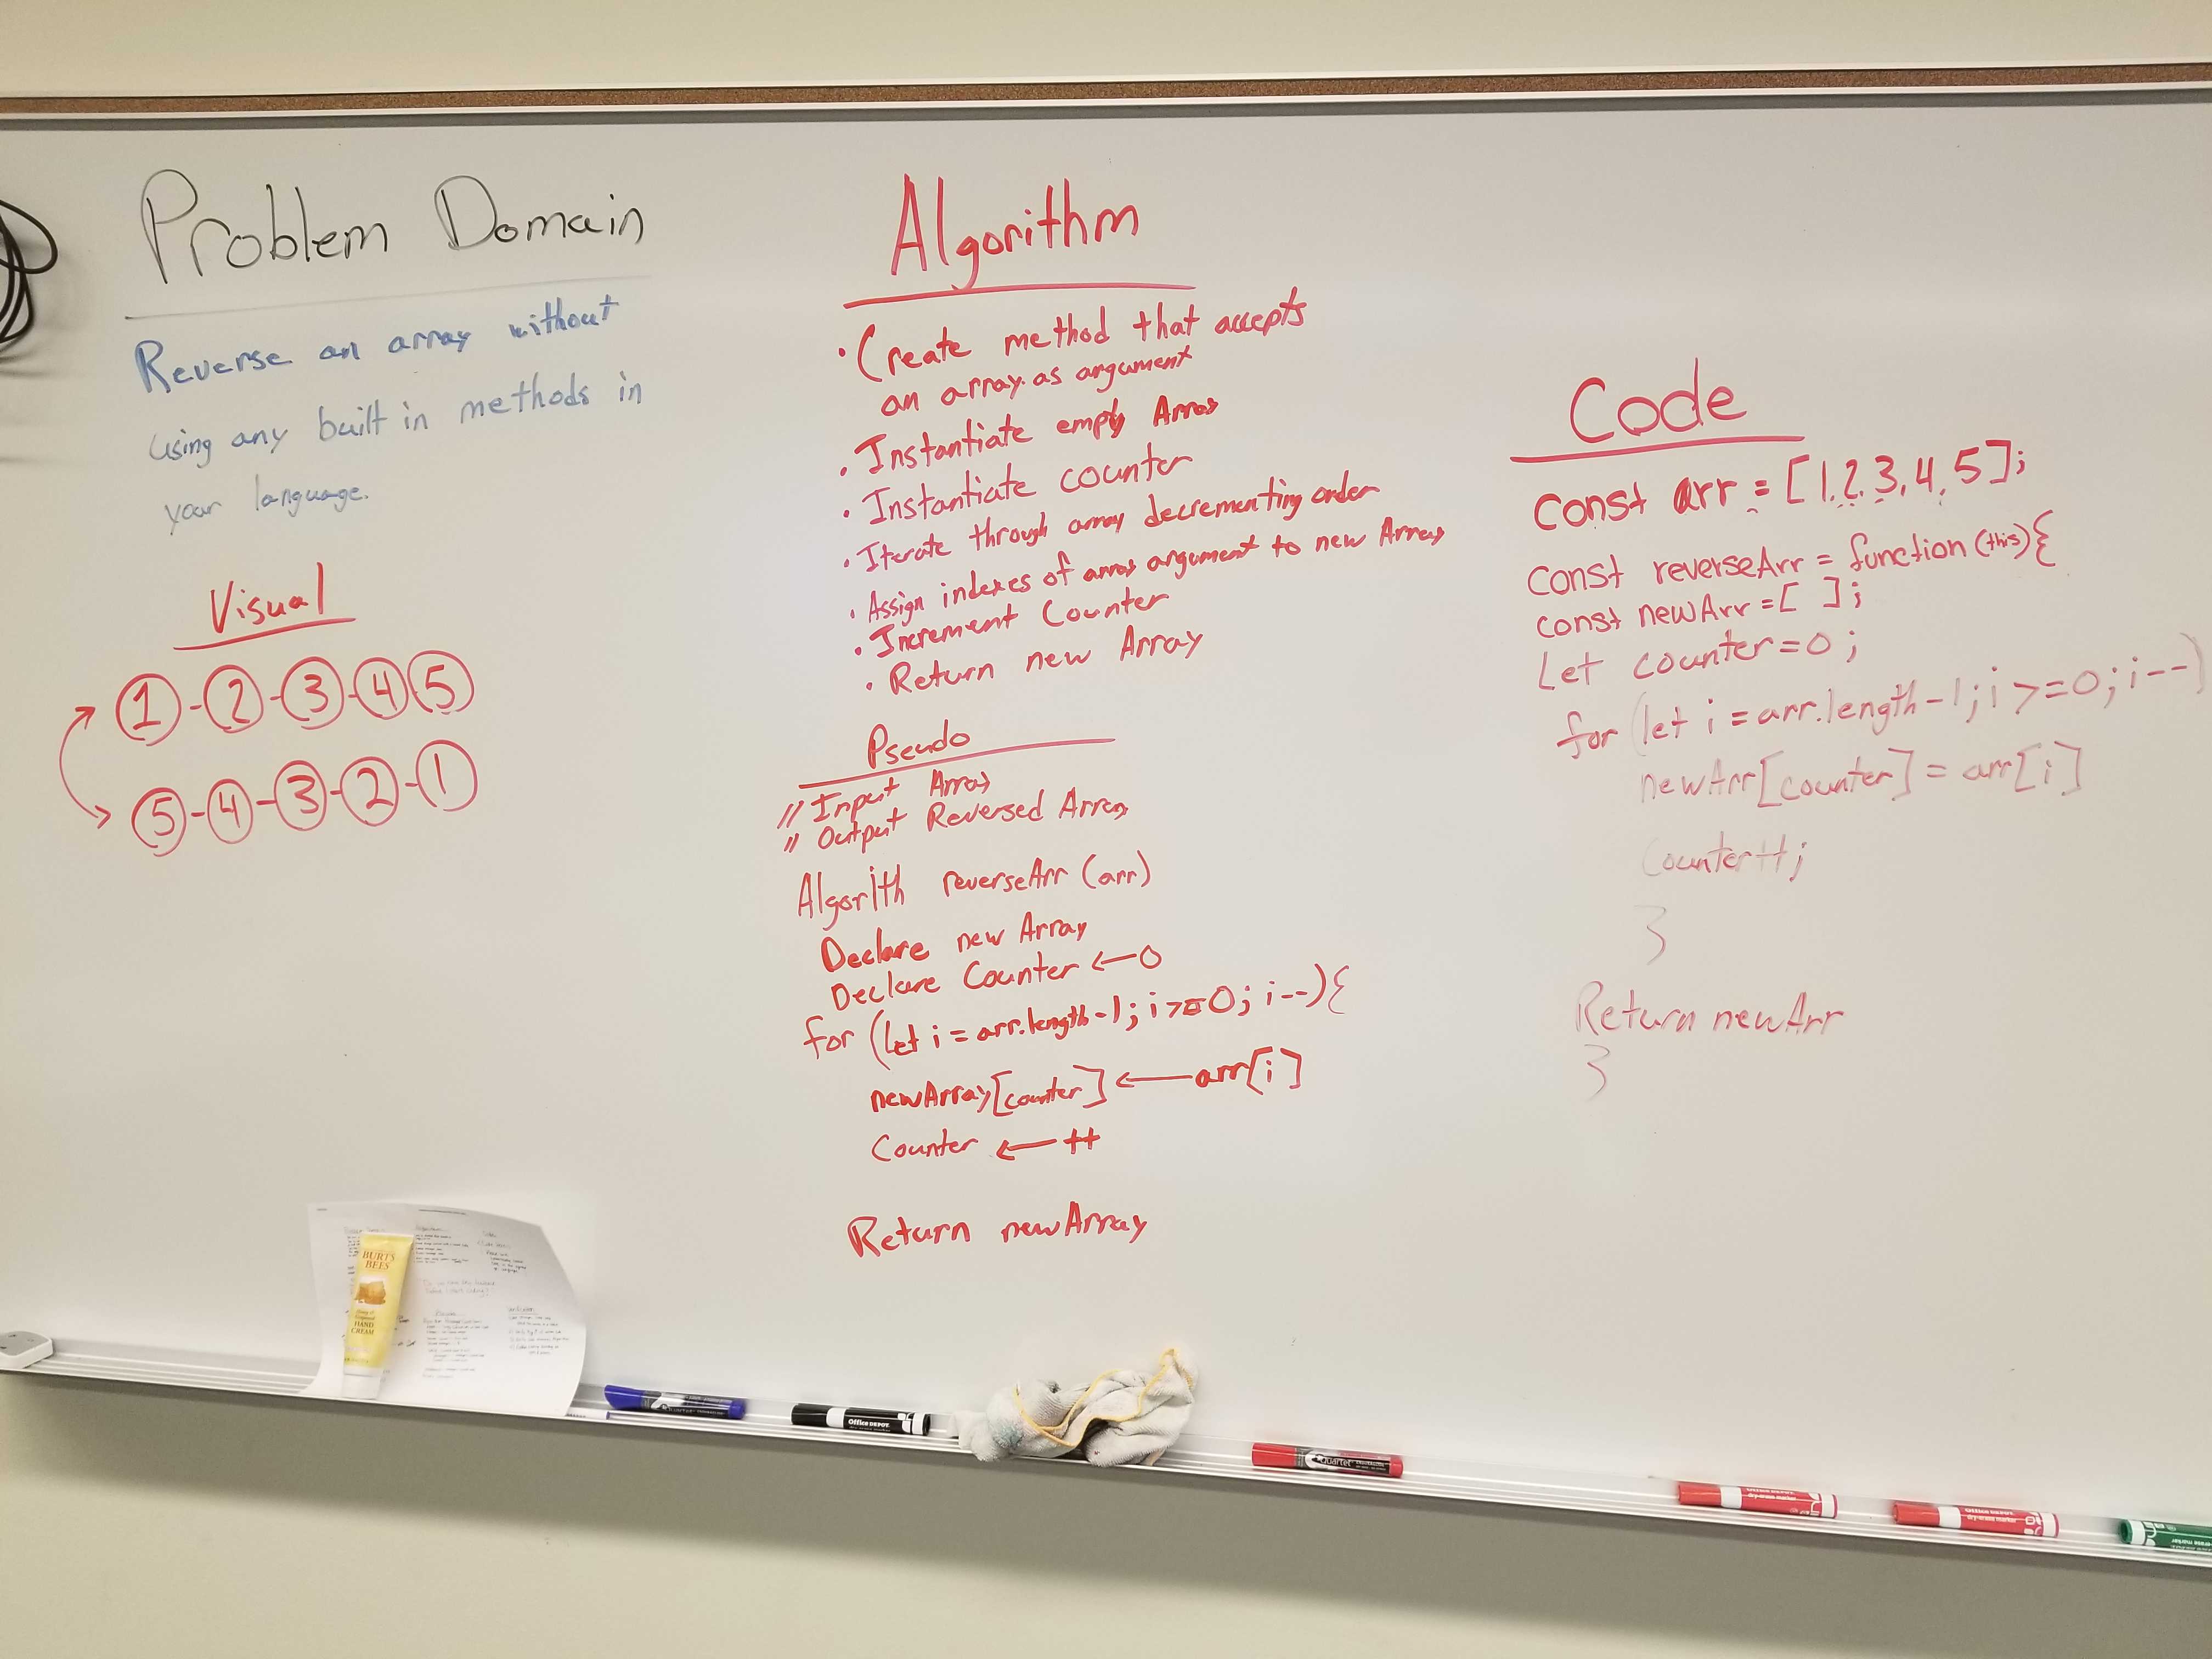 Problem Domain
Reverse an array without
using any built in methods in
your language.
Visual
1 - 2 - 3 - 4 5
5 - 4 - 3 - 2 - 1
Algorithm
· Create method that accepts
an array as argument
· Instantiate empty Array
· Instantiate counter
· Iterate through array decrementing order
· Assign indexes of array argument to new Array
· Increment Counter
· Return new Array
Pseudo
// Input Array
// Output Reversed Array
Algorith reverseArr (arr)
Declare new Array
Declare Counter ← 0
for (let i = arr.length-1; i >= 0; i--){
newArray[counter] ← arr[i]
Counter ← ++
Return newArray
Code
const arr = [1,2,3,4,5];
const reverseArr = function(this){
const newArr = [ ];
Let counter=0;
for (let i = arr.length-1; i >=0; i--)
newArr[counter] = arr[i]
Counter++;
}
Return newArr
}
BURT'S
BEES
HAND
CREAM
Office DEPOT
Quartet
Office DEPOT
dry-erase marker
Office DEPOT
dry-erase marker